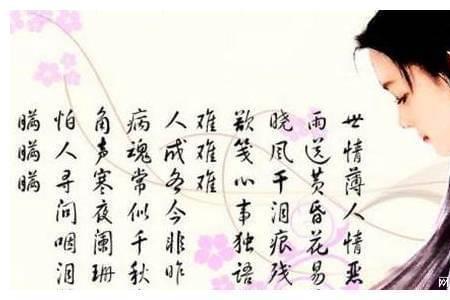 世情薄人情恶
雨送黄昏花易
晓风干泪痕残
欲笺心事独语
难难难
人成各今非昨
病魂常似千秋
角声寒夜阑珊
怕人寻问咽泪
瞒瞒瞒
网